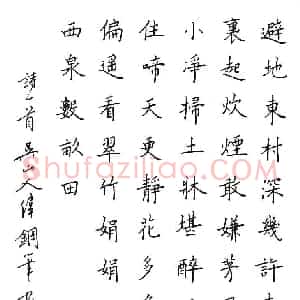 避地東村深幾許
裏起炊煙敢嫌茅
小凈掃土牀堪醉
住啼天更靜花多
偏遥看翠竹娟娟
西泉數畝田
詩一首吳文偉鋼筆
Shufaziliao.com